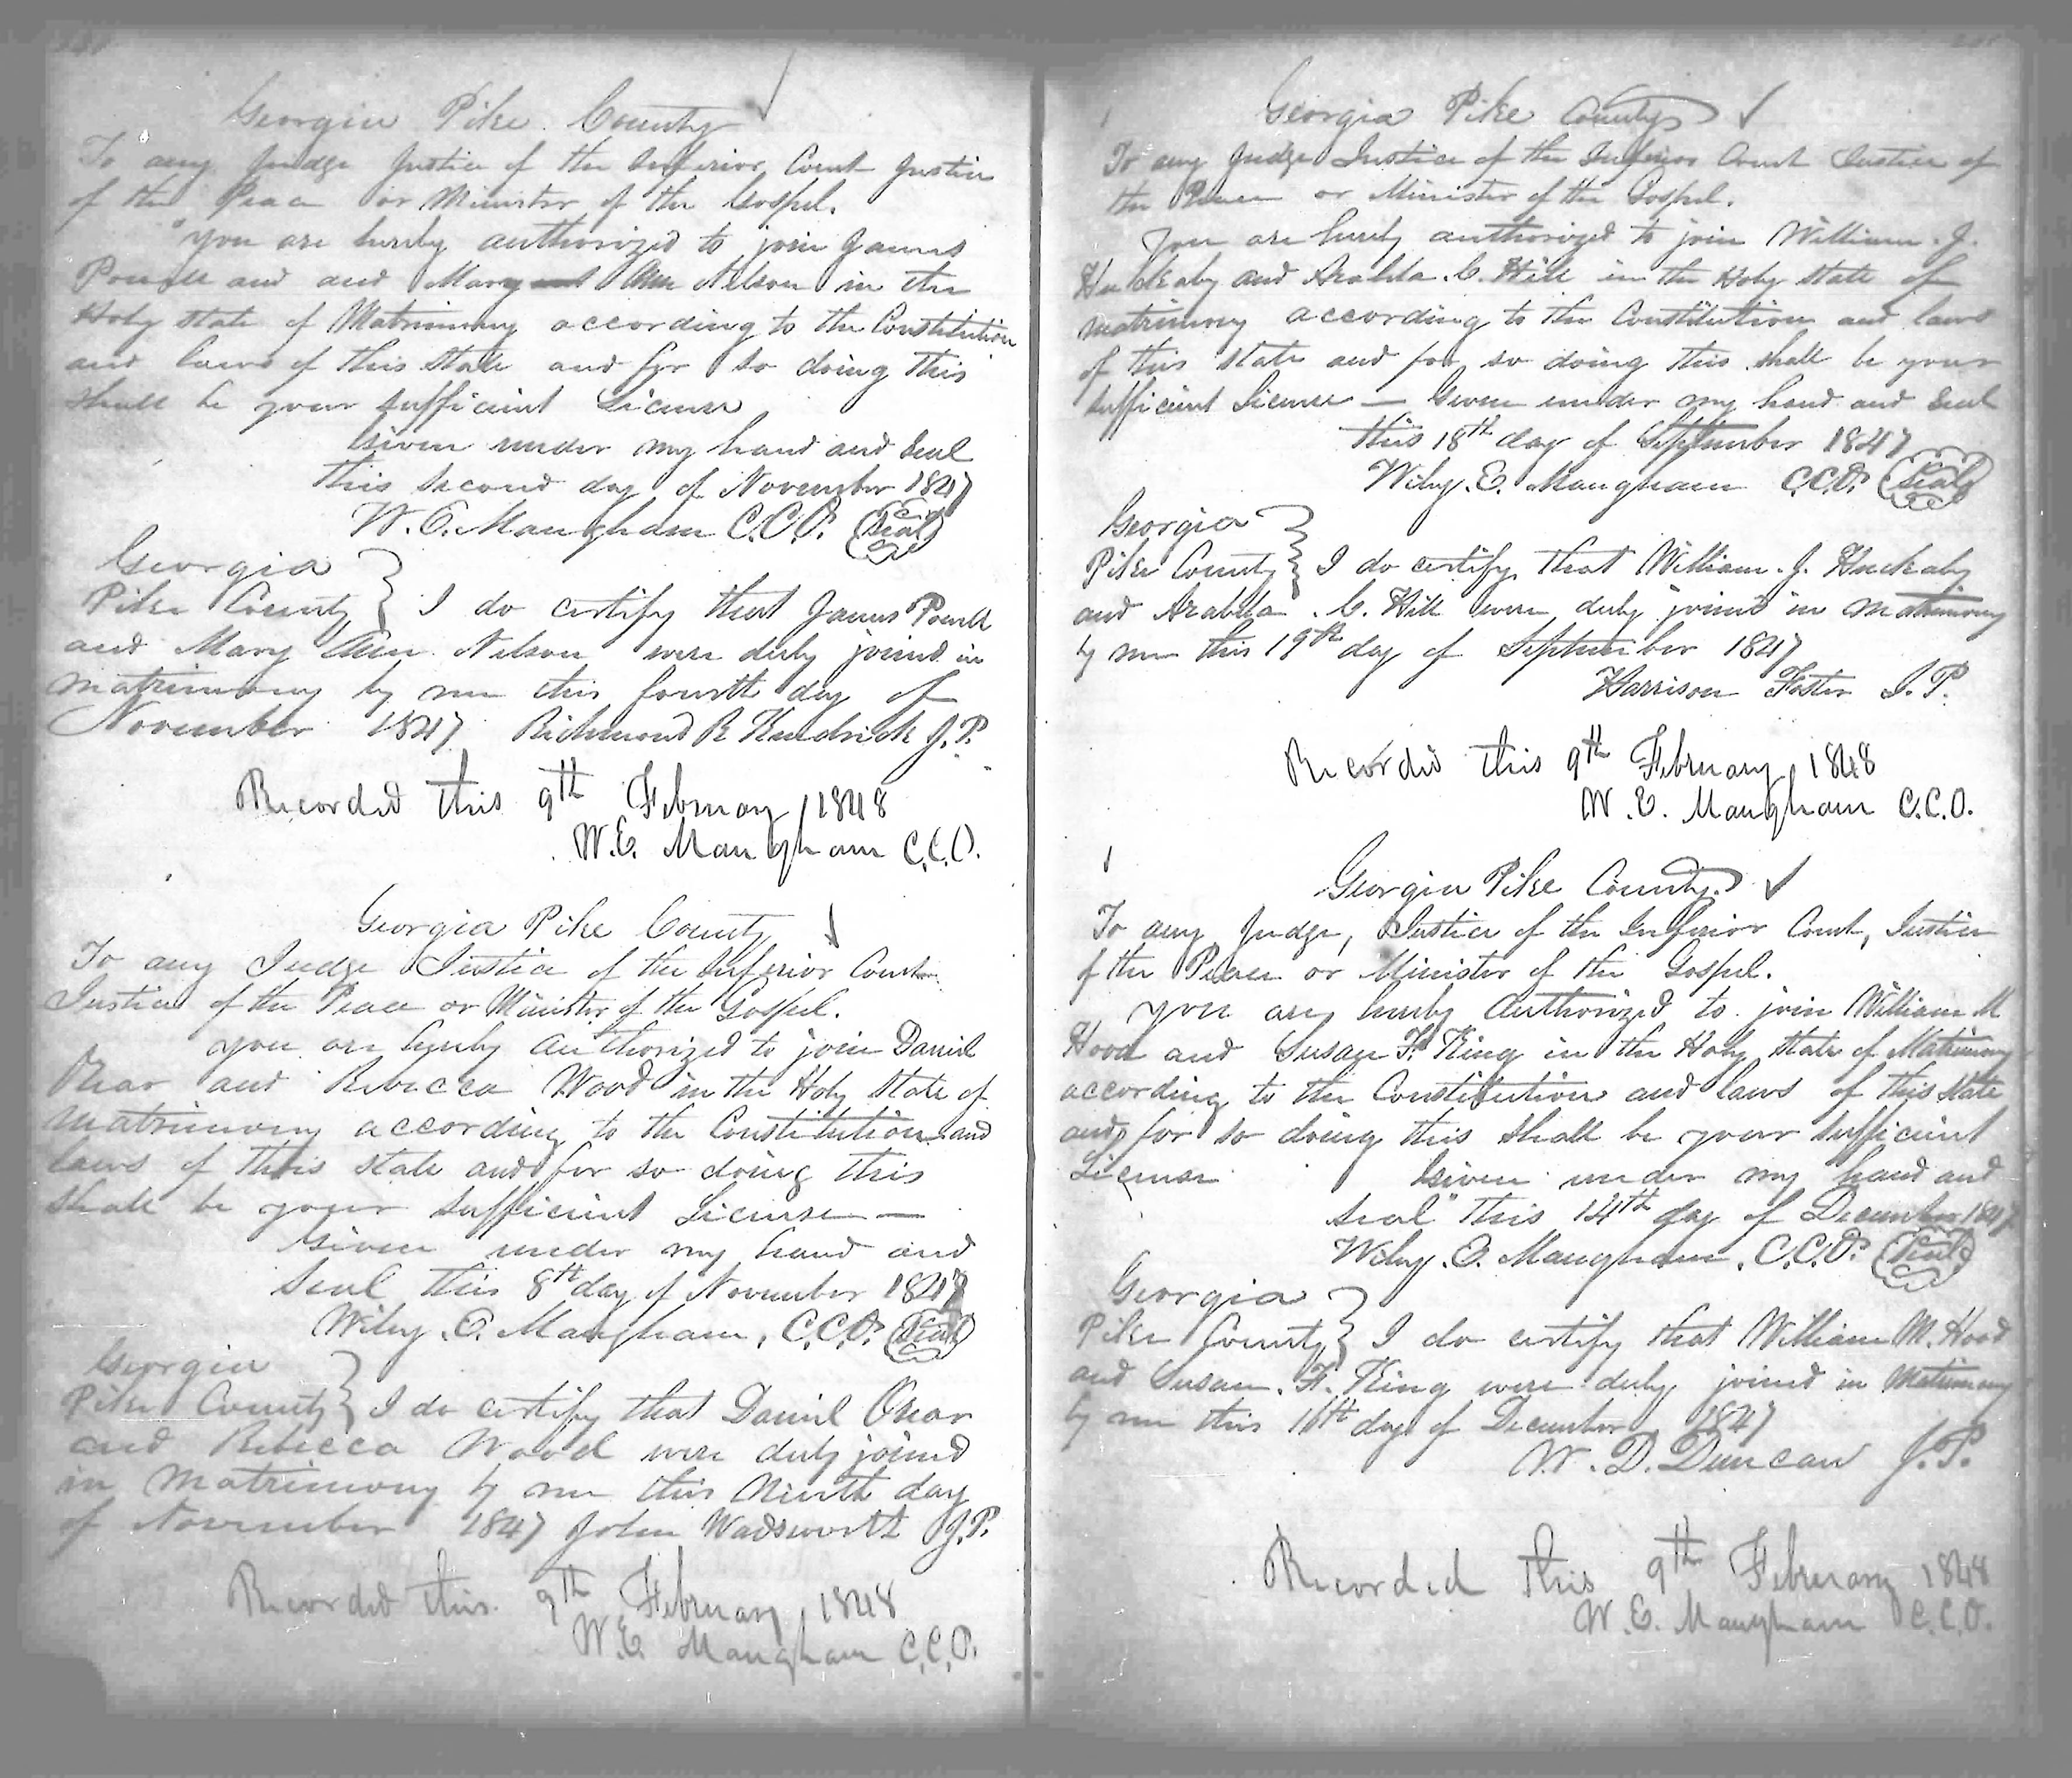 Georgia Pike County
To any Judge Justice of the Inferior Court Justice
of the Peace or Minister of the Gospel.
you are hereby authorized to join James
Powell and and Mary Ann Nelson in the
Holy state of Matrimony according to the Constitution
and laws of this State and for so doing this
shall be your sufficient License
Given under my hand and Seal
this second day of November 1847
W. E. Maugham C.C.O. (Seal)
Georgia
Pike County } I do certify that James Powell
and Mary Ann Nelson were duly joined in
matrimony by me this fourth day of
November 1847 Richmond R Hendrick J.P.
Recorded this 9th February 1848
W.E. Maugham C.C.O.
Georgia Pike County
To any Judge Justice of the Inferior Court
Justice of the Peace or Minister of the Gospel.
you are hereby authorized to join Daniel
Onear and Rebecca Wood in the Holy State of
Matrimony according to the Constitution and
laws of this state and for so doing this
shall be your sufficient License —
Given under my hand and
Seal this 8th day of November 1847
Wiley. E. Maugham, C.C.O. (Seal)
Georgia
Pike County } I do certify that Daniel Onear
and Rebecca Wood were duly joined
in Matrimony by me this Ninth day
of November 1847 John Wadsworth J.P.
Recorded this 9th February 1848
W.E. Maugham C.C.O.
Georgia Pike County
To any Judge Justice of the Inferior Court Justice of
the Peace or Minister of the Gospel.
you are hereby authorized to join William. J.
Huckaby and Arabella. C. Hill in the Holy state of
matrimony according to the Constitution and laws
of this state and for so doing this shall be your
sufficient License — Given under my hand and Seal
this 18th day of September 1847
Wiley. E. Maugham C.C.O. (Seal)
Georgia
Pike County } I do certify that William. J. Huckaby
and Arabella. C. Hill were duly joined in matrimony
by me this 19th day of September 1847
Harrison Foster J.P.
Recorded this 9th February 1848
W.E. Maugham C.C.O.
Georgia Pike County.
To any Judge, Justice of the Inferior Court, Justice
of the Peace or Minister of the Gospel.
you are hereby authorized to join William M
Hood and Susan F. King in the Holy state of Matrimony
according to the Constitution and laws of this state
and for so doing this shall be your sufficient
License Given under my hand and
seal this 14th day of December 1847
Wiley. E. Maugham, C.C.O. (Seal)
Georgia
Pike County } I do certify that William M. Hood
and Susan. F. King were duly joined in Matrimony
by me this 16th day of December 1847
W. D. Duncan J.P.
Recorded this 9th February 1848
W.E. Maugham C.C.O.